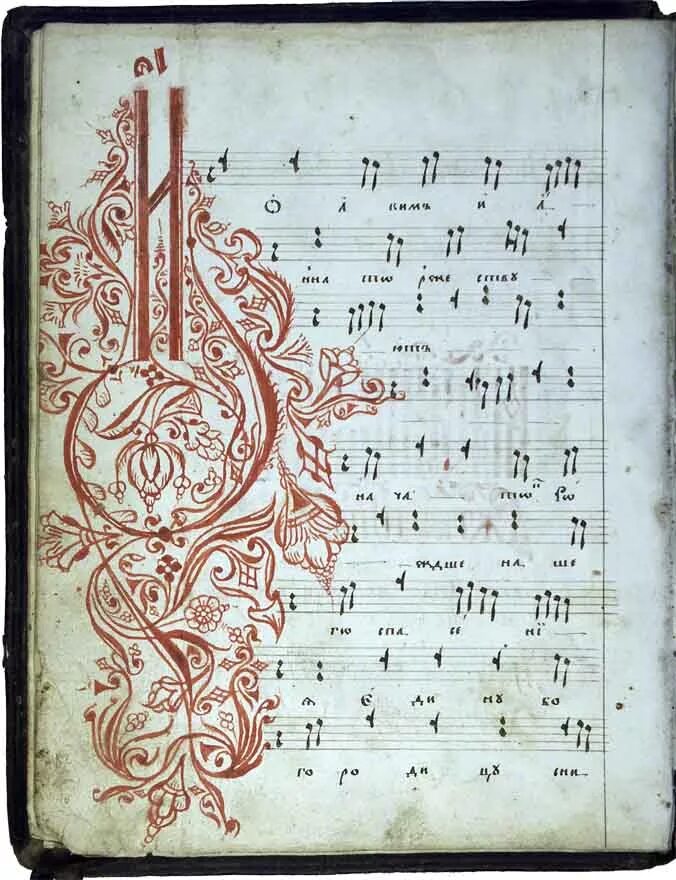 И҆
О҆ а кимъ и а҆
нна то рже ству
ютъ
на ча тоⷦ҇ ро
ждше на ше
го спа се нї
я Е҆ ди ну бо
го ро ди цу сни